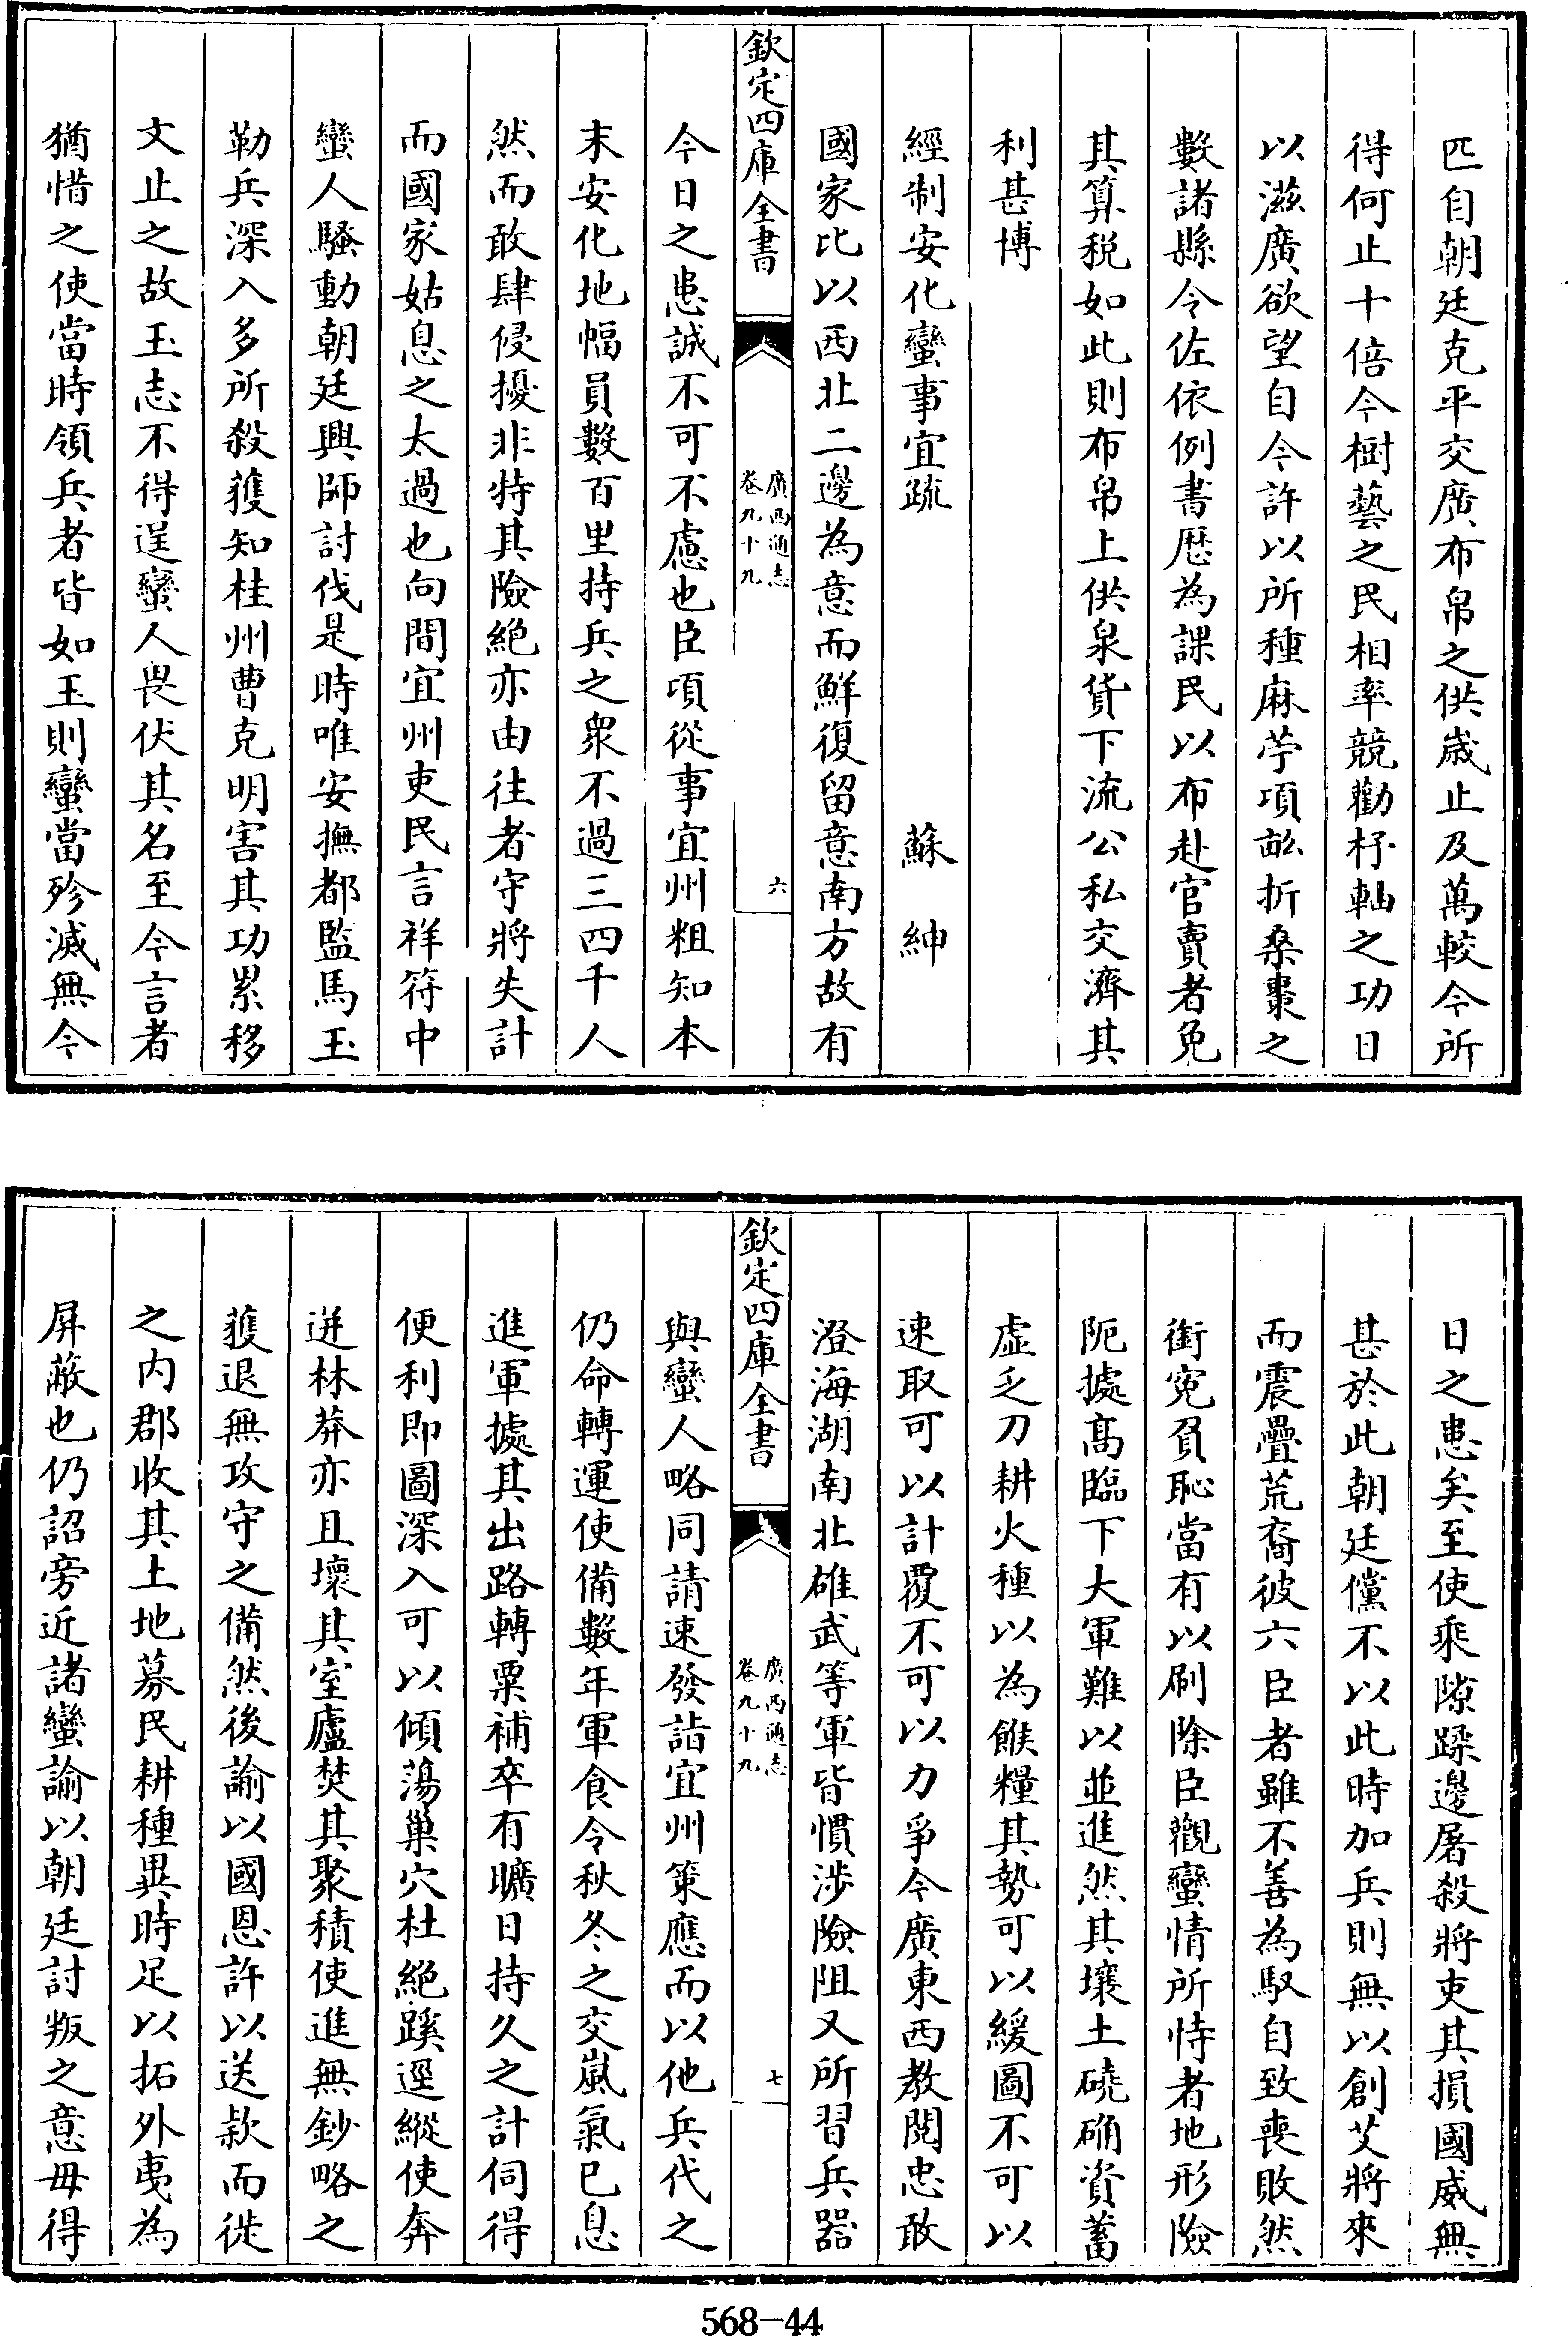 匹自朝廷克平交廣布帛之供歳止及萬較今所
得何止十倍今樹藝之民相率競勸杼軸之功日
以滋廣欲望自今許以所種麻苧頃畝折桑棗之
數諸縣令佐依例書歴為課民以布赴官賣者免
其算税如此則布帛上供泉貨下流公私交濟其
利甚博
經制安化蠻事宜疏 蘇紳
國家比以西北二邊為意而鮮復留意南方故有
欽定四庫全書 廣西通志 卷九十九 六
今日之患誠不可不慮也臣頃從事宜州粗知本
末安化地幅員數百里持兵之衆不過三四千人
然而敢肆侵擾非特其險絶亦由往者守將失計
而國家姑息之太過也向聞宜州吏民言祥符中
蠻人騷動朝廷興師討伐是時唯安撫都監馬玉
勒兵深入多所殺獲知桂州曹克明害其功累移
文止之故玉志不得逞蠻人畏伏其名至今言者
猶惜之使當時領兵者皆如玉則蠻當殄滅無今
日之患矣至使乘隙蹂邊屠殺將吏其損國威無
甚於此朝廷儻不以此時加兵則無以創艾將來
而震疊荒裔彼六臣者雖不善為馭自致喪敗然
銜寃負恥當有以刷除臣觀蠻情所恃者地形險
阨據髙臨下大軍難以並進然其壤土磽确資蓄
虛乏刀耕火種以為餱糧其勢可以緩圖不可以
速取可以計覆不可以力爭今廣東西教閲忠敢
澄海湖南北雄武等軍皆慣涉險阻又所習兵器
欽定四庫全書 廣西通志 卷九十九 七
與蠻人略同請速發詣宜州策應而以他兵代之
仍命轉運使備數年軍食令秋冬之交嵐氣已息
進軍據其出路轉粟補卒有曠日持久之計伺得
便利即圖深入可以傾蕩巢穴杜絶蹊逕縱使奔
迸林莽亦且壞其室廬焚其聚積使進無鈔略之
獲退無攻守之備然後諭以國恩許以送款而徙
之内郡收其土地募民耕種異時足以拓外夷為
屏蔽也仍詔旁近諸蠻諭以朝廷討叛之意毋得
568-44